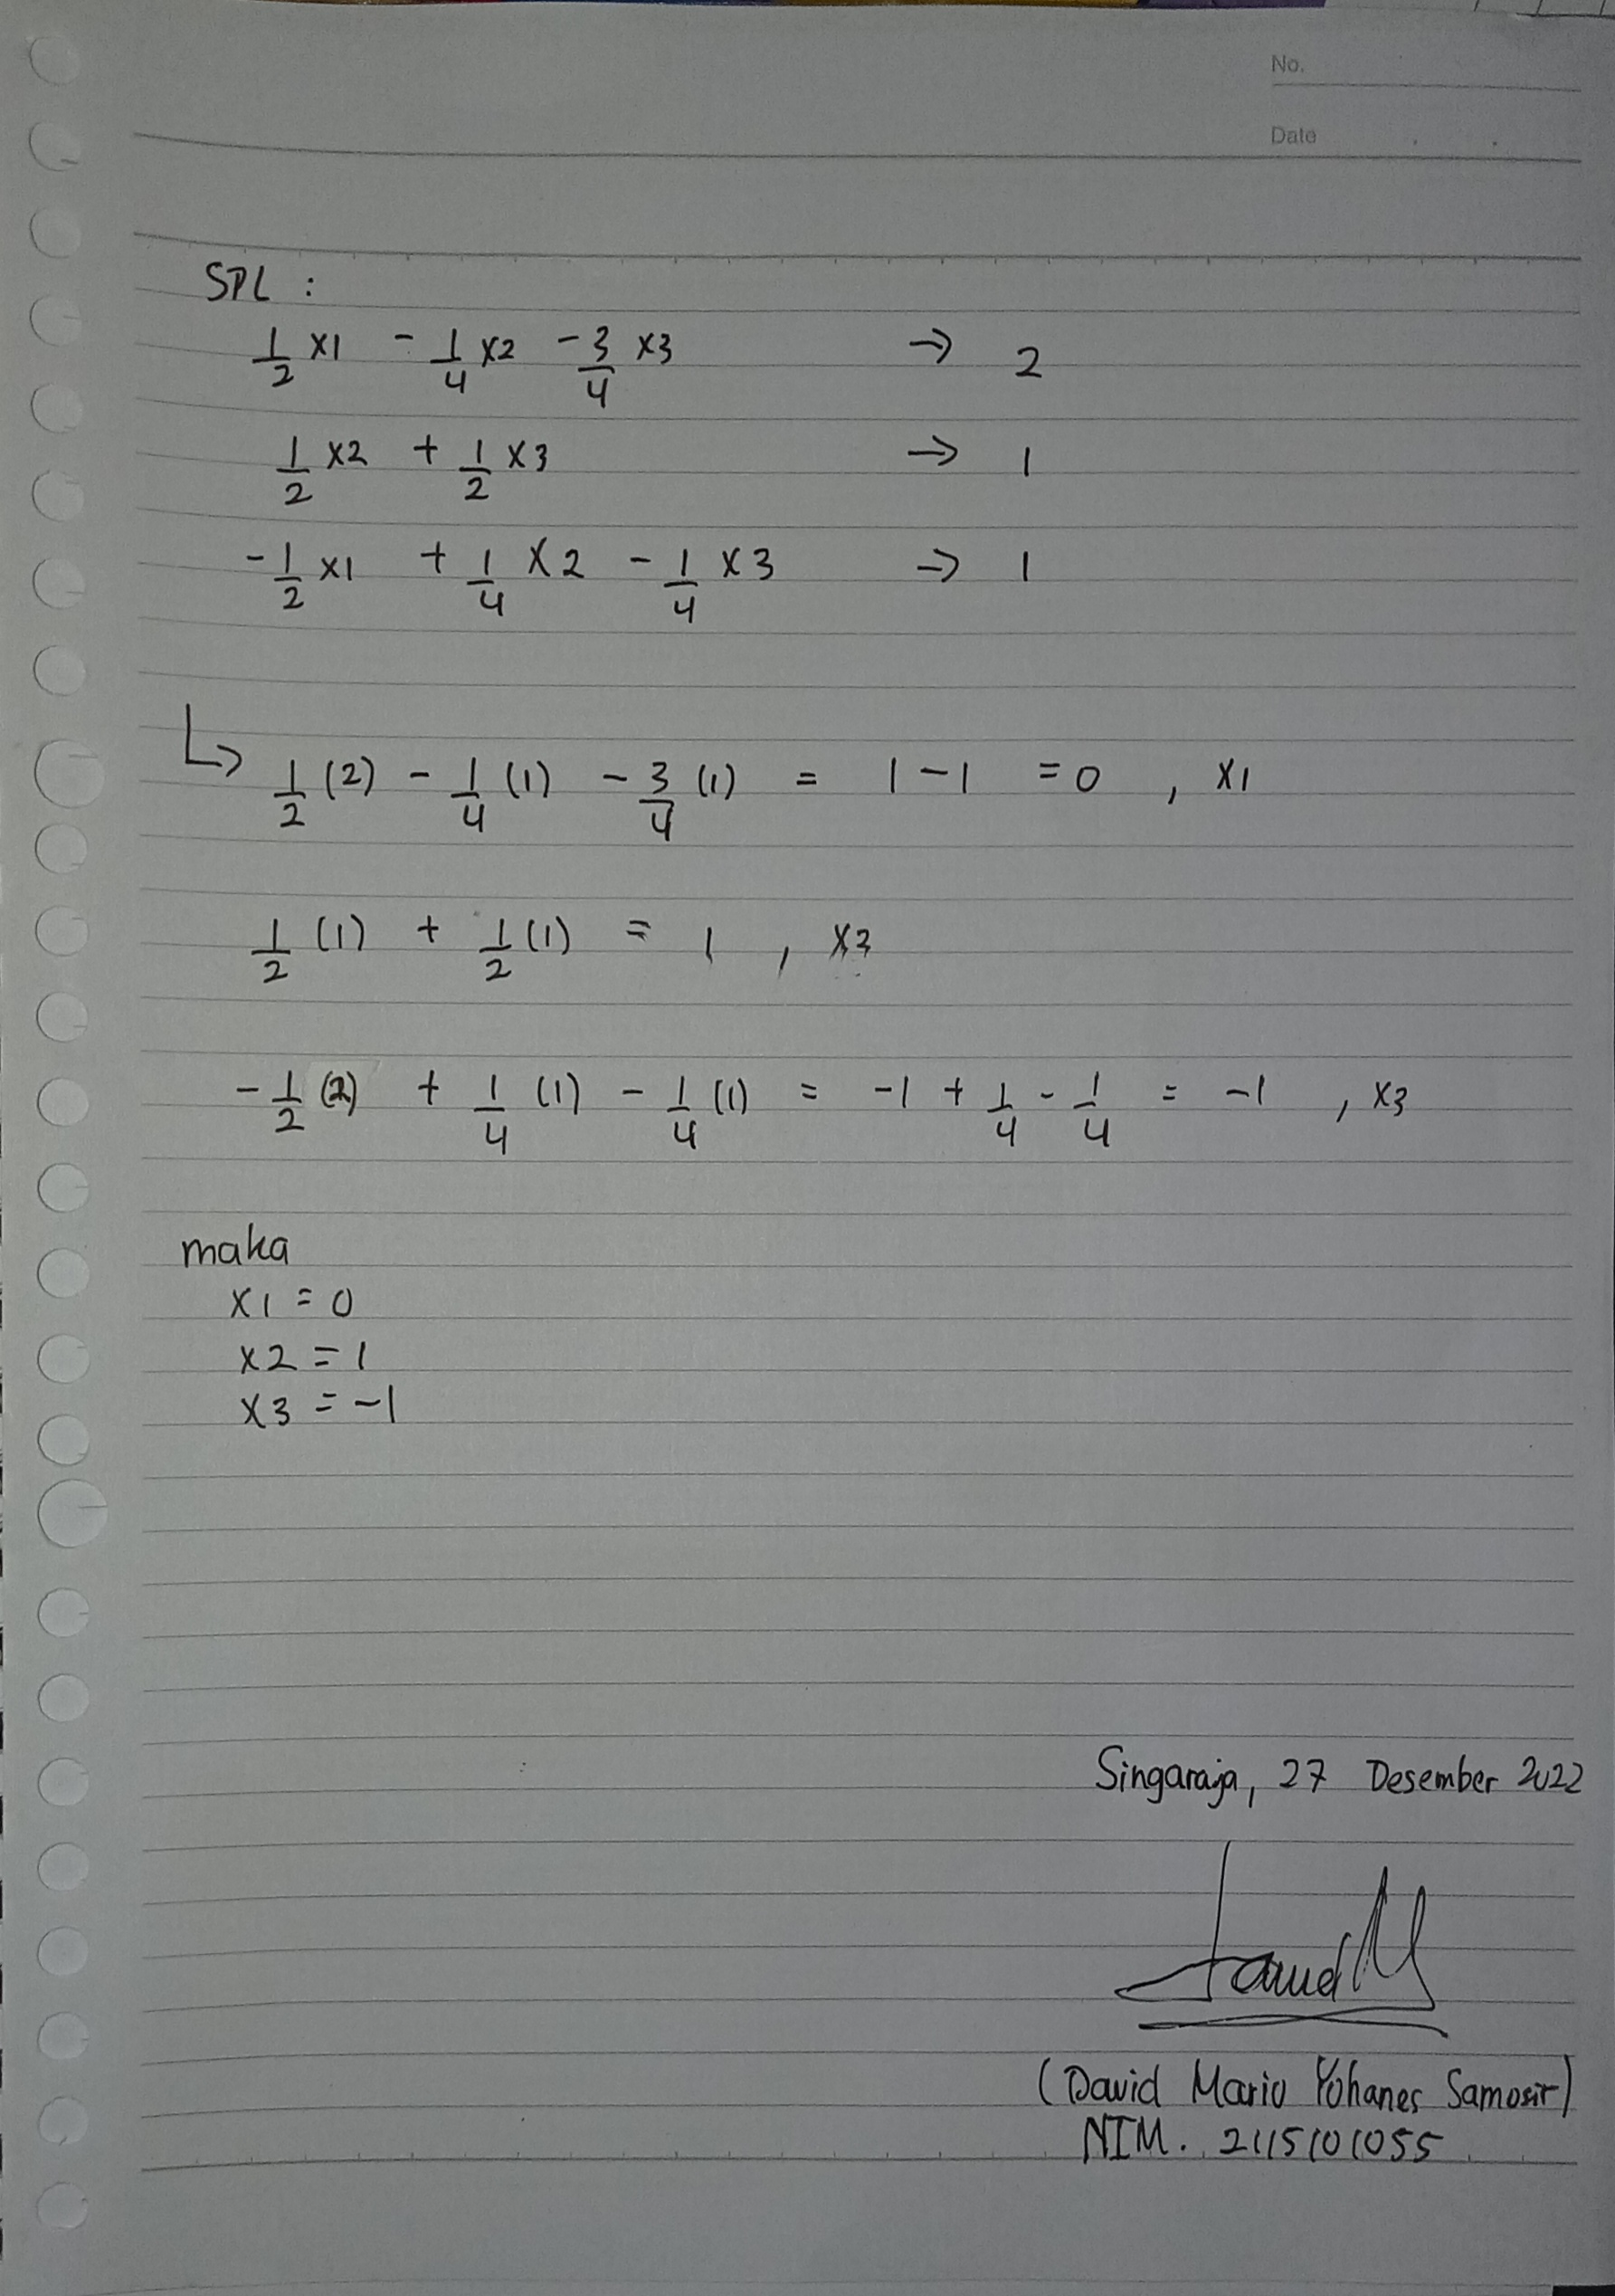 No.
Date
SPL :
1/2 x1 - 1/4 x2 - 3/4 x3 → 2
1/2 x2 + 1/2 x3 → 1
-1/2 x1 + 1/4 x2 - 1/4 x3 → 1
↳ 1/2 (2) - 1/4 (1) - 3/4 (1) = 1 - 1 = 0 , x1
1/2 (1) + 1/2 (1) = 1 , x2
-1/2 (2) + 1/4 (1) - 1/4 (1) = -1 + 1/4 - 1/4 = -1 , x3
maka
x1 = 0
x2 = 1
x3 = -1
Singaraja, 27 Desember 2022
David M
(David Mario Yohanes Samosir)
NIM. 2115101055